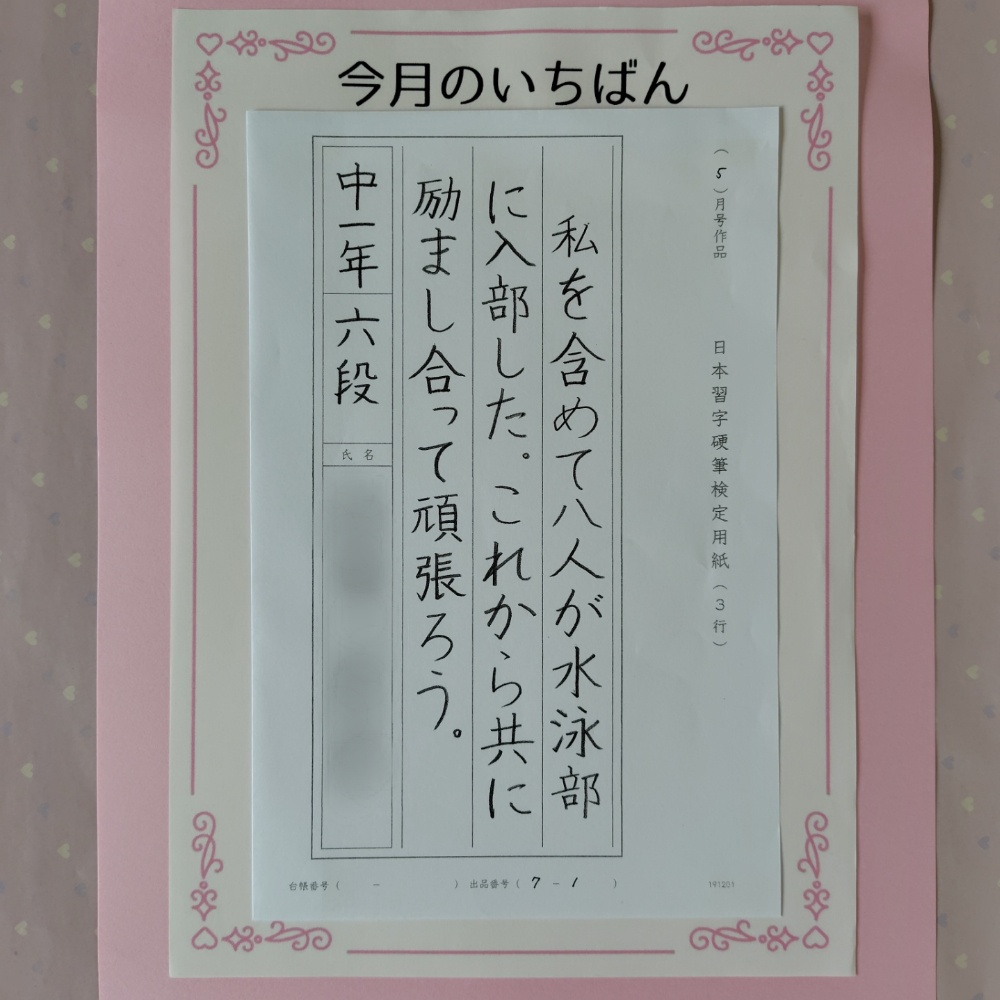 今月のいちばん
(5)月号作品 日本習字硬筆検定用紙(3行)
私を含めて八人が水泳部
に入部した。これから共に
励まし合って頑張ろう。
中一年 六段
氏名
台帳番号( - ) 出品番号(7-1)
191201